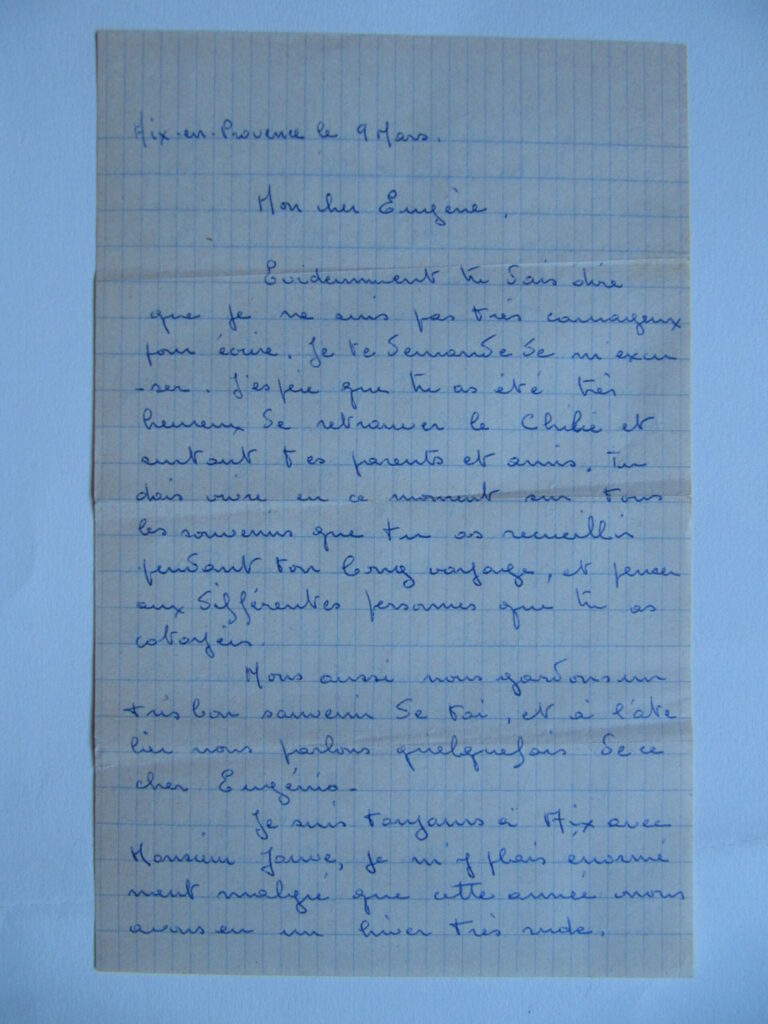 Aix-en-Provence le 9 Mars.
Mon cher Eugène,
Evidemment tu dois dire
que je ne suis pas très courageux
pour écrire. Je te demande de m'excu
-ser. J'espère que tu as été très
heureux de retrouver le Chili et
surtout tes parents et amis. Tu
dois vivre en ce moment sur tous
les souvenirs que tu as recueillis
pendant ton long voyage, et penser
aux différentes personnes que tu as
cotoyées.
Nous aussi nous gardons un
très bon souvenir de toi, et à l'ate
lier nous parlons quelquefois de ce
cher Eugénio.
Je suis toujours à Aix avec
Monsieur Jauve, je m'y plais énormé
ment malgré que cette année nous
avons eu un hiver très rude.